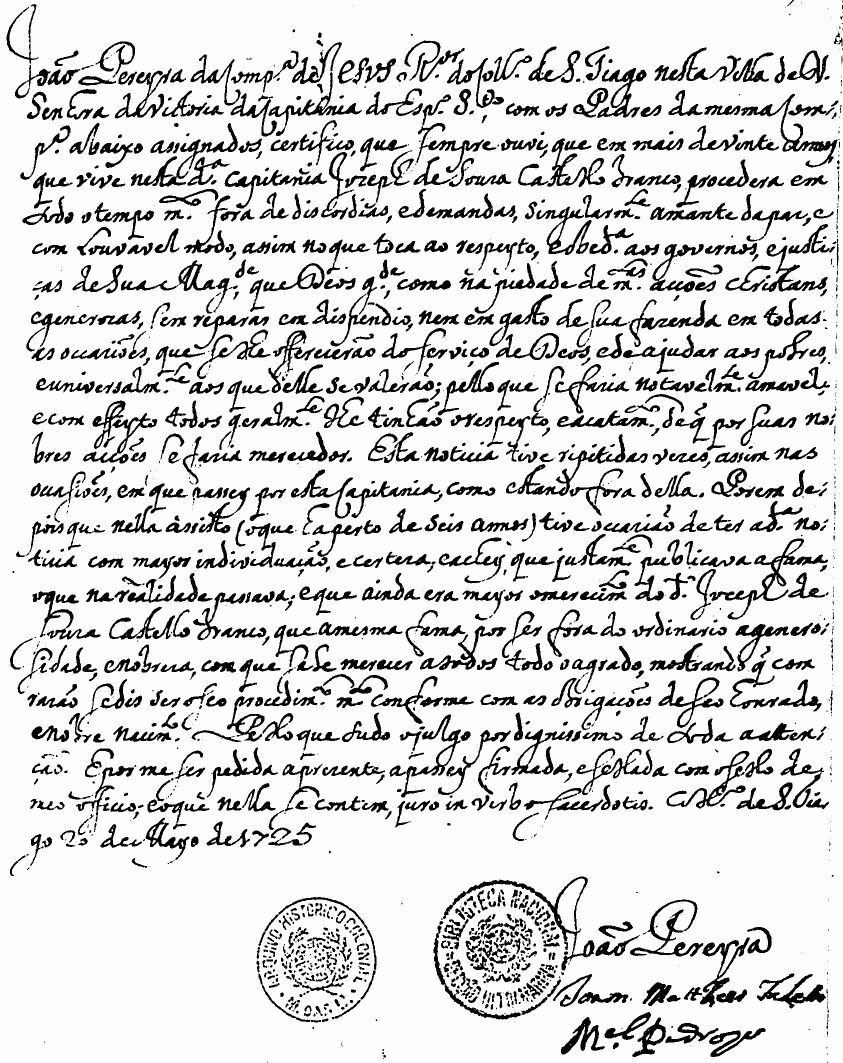 João Pereyra da Comp.ª de JESVS R.or do Coll.º de S. Tiago nesta Villa de N.
Senhora da Victoria da Capitania do Esp.º S.to com os Padres da mesma Com-
p.ª abaixo assignados, certifico, que sempre ouvi, que em mais de vinte annos,
que vive nesta d.ª Capitania Jozeph de Souza Castello branco, procedera em
todo o tempo m.to fora de discordias, e demandas, singularm.te amante da paz, e
com louvavel modo, assim no que toca ao respeyto, e obed.ª aos governos, e justi-
ças de Sua Mag.de, que Deos g.de, como na piedade de m.tas acções christans,
e generozas, sem reparar em dispendio, nem em gasto de sua fazenda em todas
as occaziões, que se lhe offerecerão do serviço de Deos, e de ajudar aos pobres,
e universalm.te aos que delle se valerão; pello que se fazia notavelm.te amavel;
e com effeyto todos geralm.te lhe tinhão o respeyto, e acatam.to, de q̃ por suas no-
bres acções se fazia merecedor. Esta noticia tive ripitidas vezes, assim nas
ocasiões, em que passey por esta Capitania, como estando fora della. Porem de-
pois que nella assisto (o que ha perto de seis annos) tive occazião de ter a d.ª no-
ticia com mayor individuação, e certeza, e achey, que justam.te publicava a fama,
o que na realidade passava; e que ainda era mayor o merecim.to do d.º Jozeph de
Souza Castello branco, que a mesma fama, por ser fora do ordinario a genero-
sidade, e nobreza, com que sabe merecer a todos todo o agrado, mostrando q̃ com
razão se diz ser o seo procedim.to m.to conforme com as obrigações de seo honrado,
e nobre nacim.to. Pello que tudo o julgo por dignissimo de toda a atten-
ção. E por me ser pedida a prezente, a passey firmada, e sellada com o sello de
meo officio; e o que nella se contem, juro in verbo sacerdotis. Coll.º de S. Tia-
go 20 de Mayo de 1725
ARQUIVO HISTORICO COLONIAL
BIBLIOTECA NACIONAL
João Pereyra
Joam Matheos
M.el Pedrozo